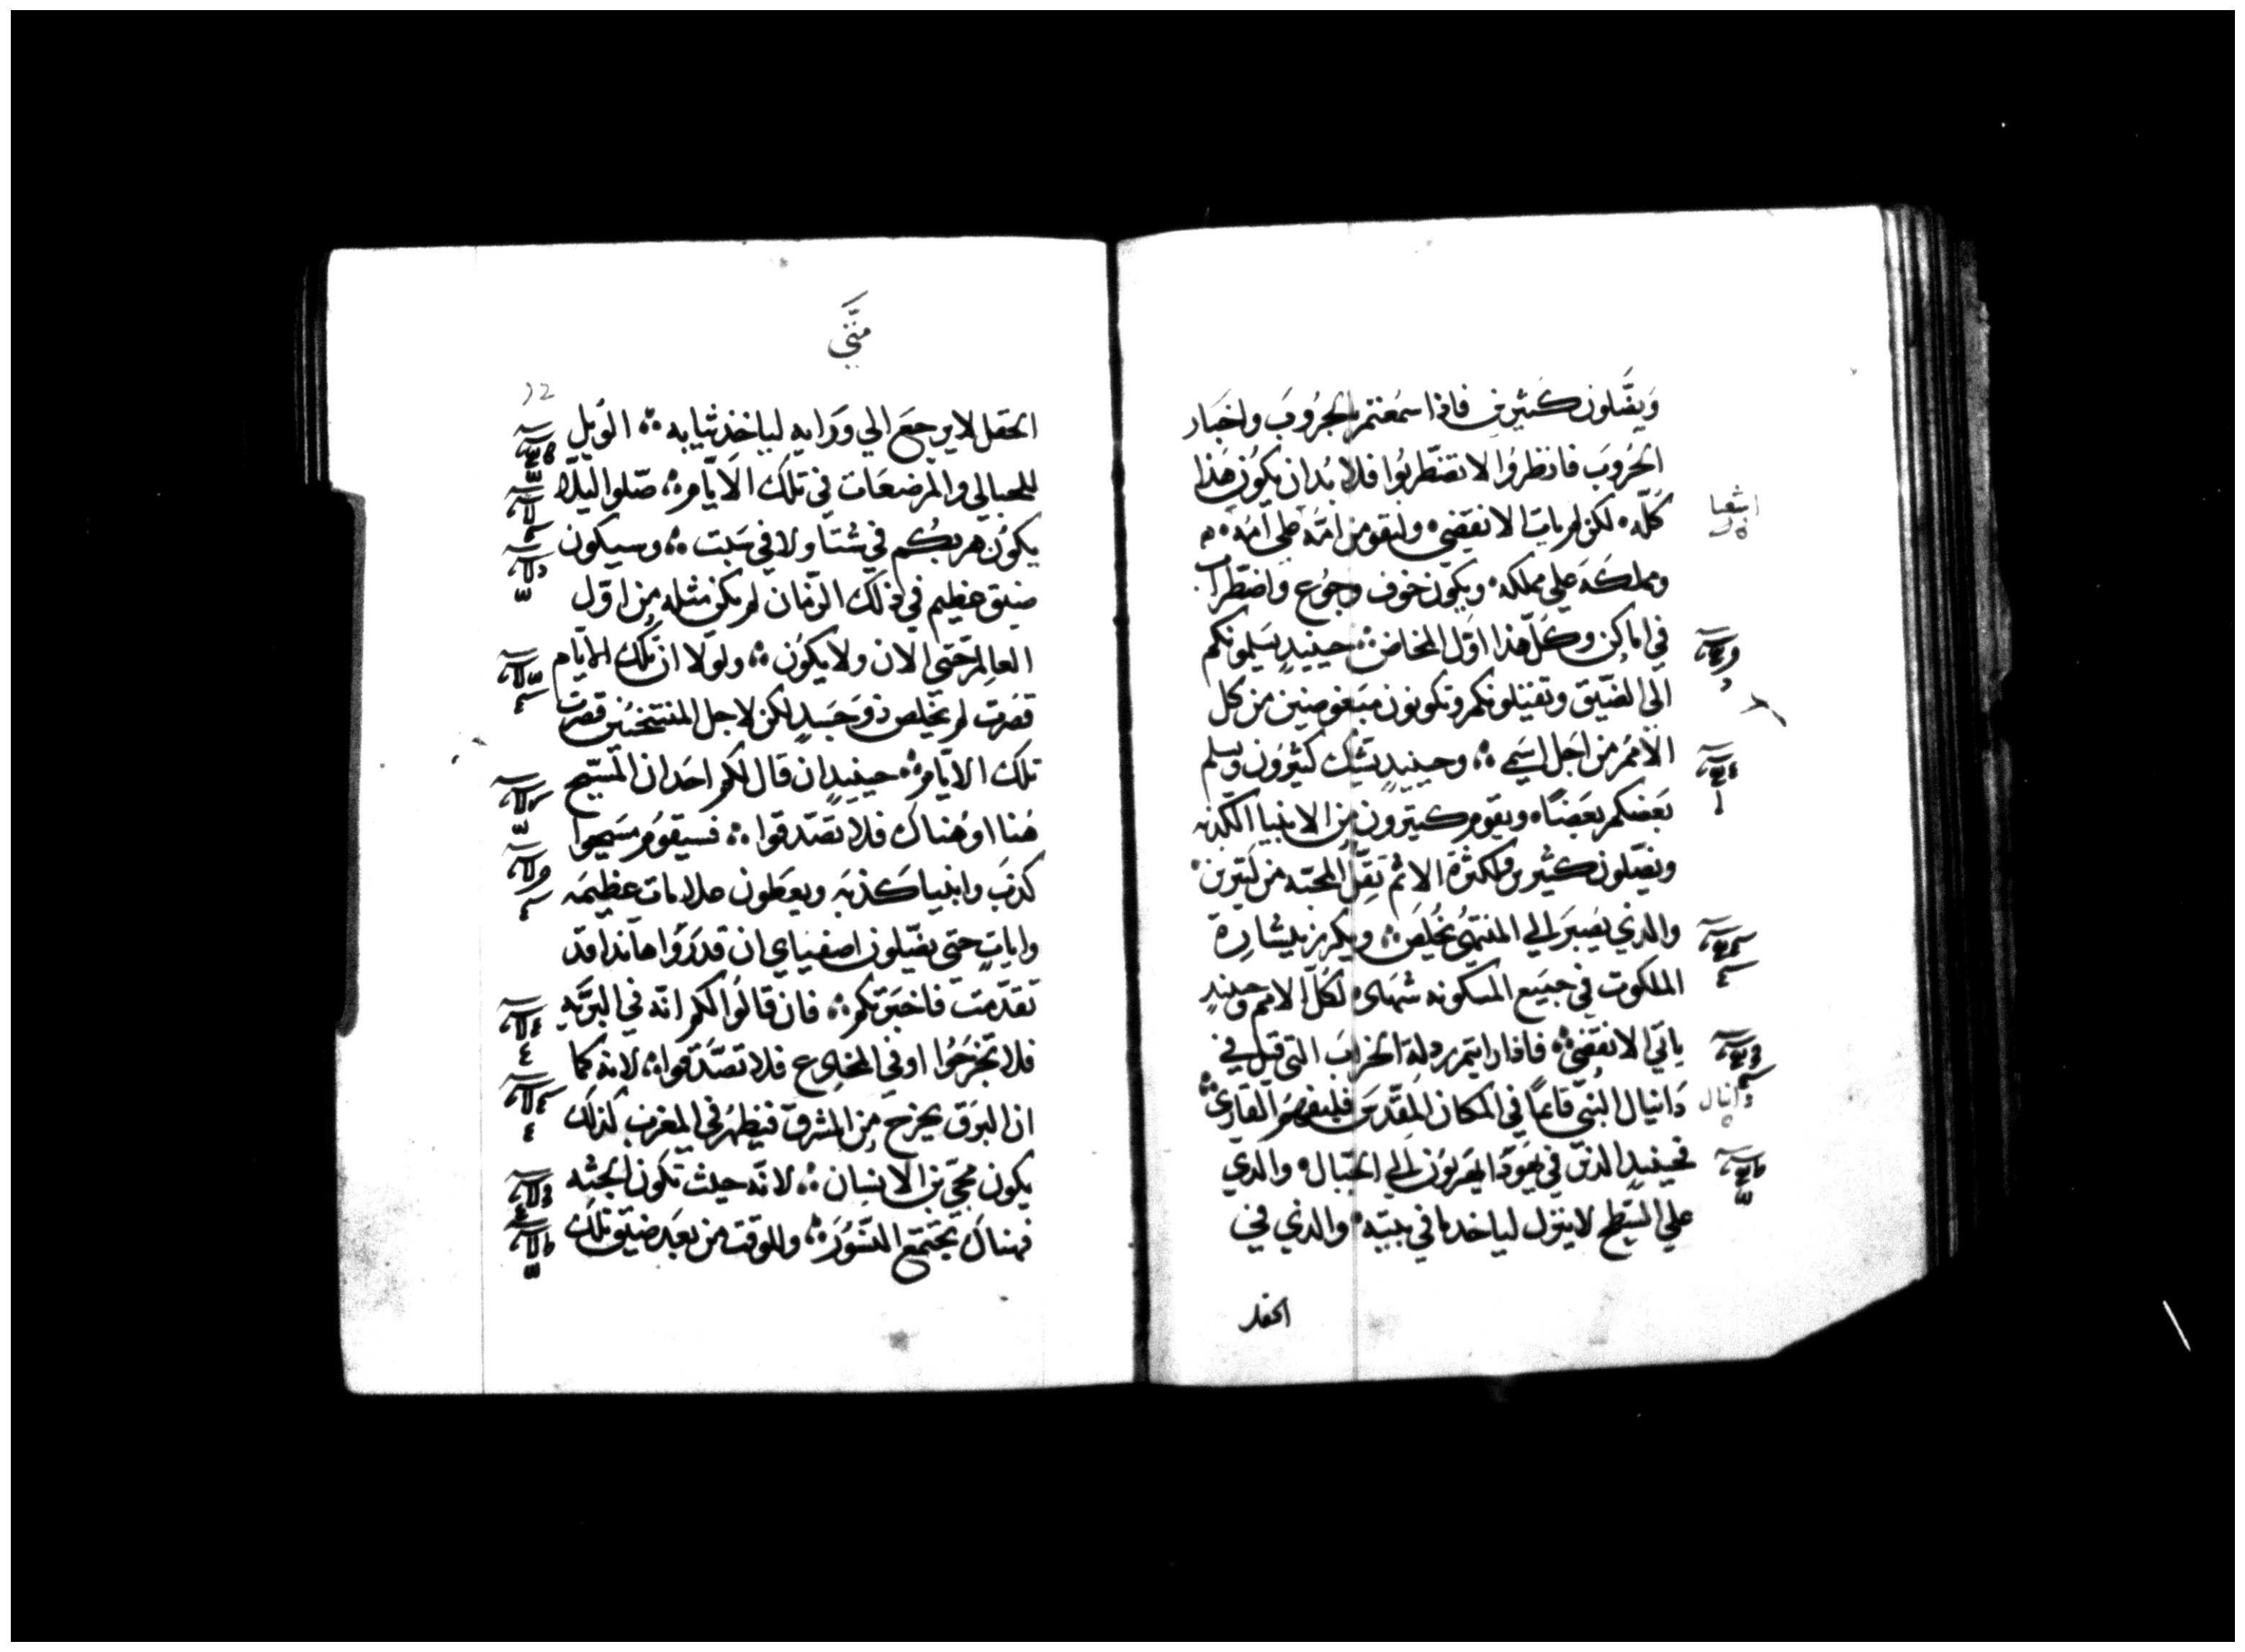 ويضّلون كثيرين فاذا سمعتم بالحروب واخبار
الحروب فانظروا لا تضطربوا فلا بد ان يكون هذا
كله لكن لم يات الانقضي ولتقومن امّه علي امّه
ومملكه علي مملكه ويكون خوف وجوع واضطراب
في اماكن وكل هذا اول المخاض حينيدٍ يسلمونكم
الى الضيق وتقتلونكم وتكونون مبغوضين من كل
الامم من اجل اسمي وحينيدٍ يشك كثيرون ويسلم
بعضكم بعضًا ويقوم كتيرون من الانبيا الكذبه
ويضّلون كثيرين ولكثرة الاثم تقل المحبه من كتيرين
والذي يصبر الي المنتهي يخلص ويكرز ببشارة
الملكوت في جميع المسكونه شهاده لكل الامم وحينيدٍ
ياتي الانقضي فاذا رايتم رذلة الخراب التي قيل في
دانيال النبي قايمًا في المكان المقدس فليفهم القاري
فحينيدٍ الذين في يهودا يهربون الي الجبال والدي
علي السطح لا ينزل لياخد ما في بيته والذي في
الحقل
اشعيا
دانيال
متّي
الحقل لا يرجع الي ورايه لياخذ ثيابه الويل
للحبالي والمرضعات في تلك الايام صلوا ليلا
يكون هربكم في شتا ولا في سبت وسيكون
ضيق عظيم في ذلك الزمان لم يكن مثله من اول
العالم حتي الان ولا يكون ولولا ان تلك الايام
قصرت لم يخلص ذو جسدٍ لكن لاجل المنتخبين قصرت
تلك الايام حينيدٍ ان قال لكم احد ان المسيح
هنا او هناك فلا تصدقوا فسيقوم مسيحوا
كذب وانبيا كذبه ويعطون علامات عظيمه
وايات حتى يضّلون اصفياي ان قدروا هاندا قد
تقدمت فاخبرتكم فان قالوا لكم انه في البريه
فلا تخرجوا او في المخادع فلا تصدقوا لانه كما
ان البرق يخرج من المشرق فيظهر في المغرب كذلك
يكون مجي بن الانسان لانه حيث تكون الجثه
فهناك تجتمع النسور وللوقت من بعد ضيق تلك